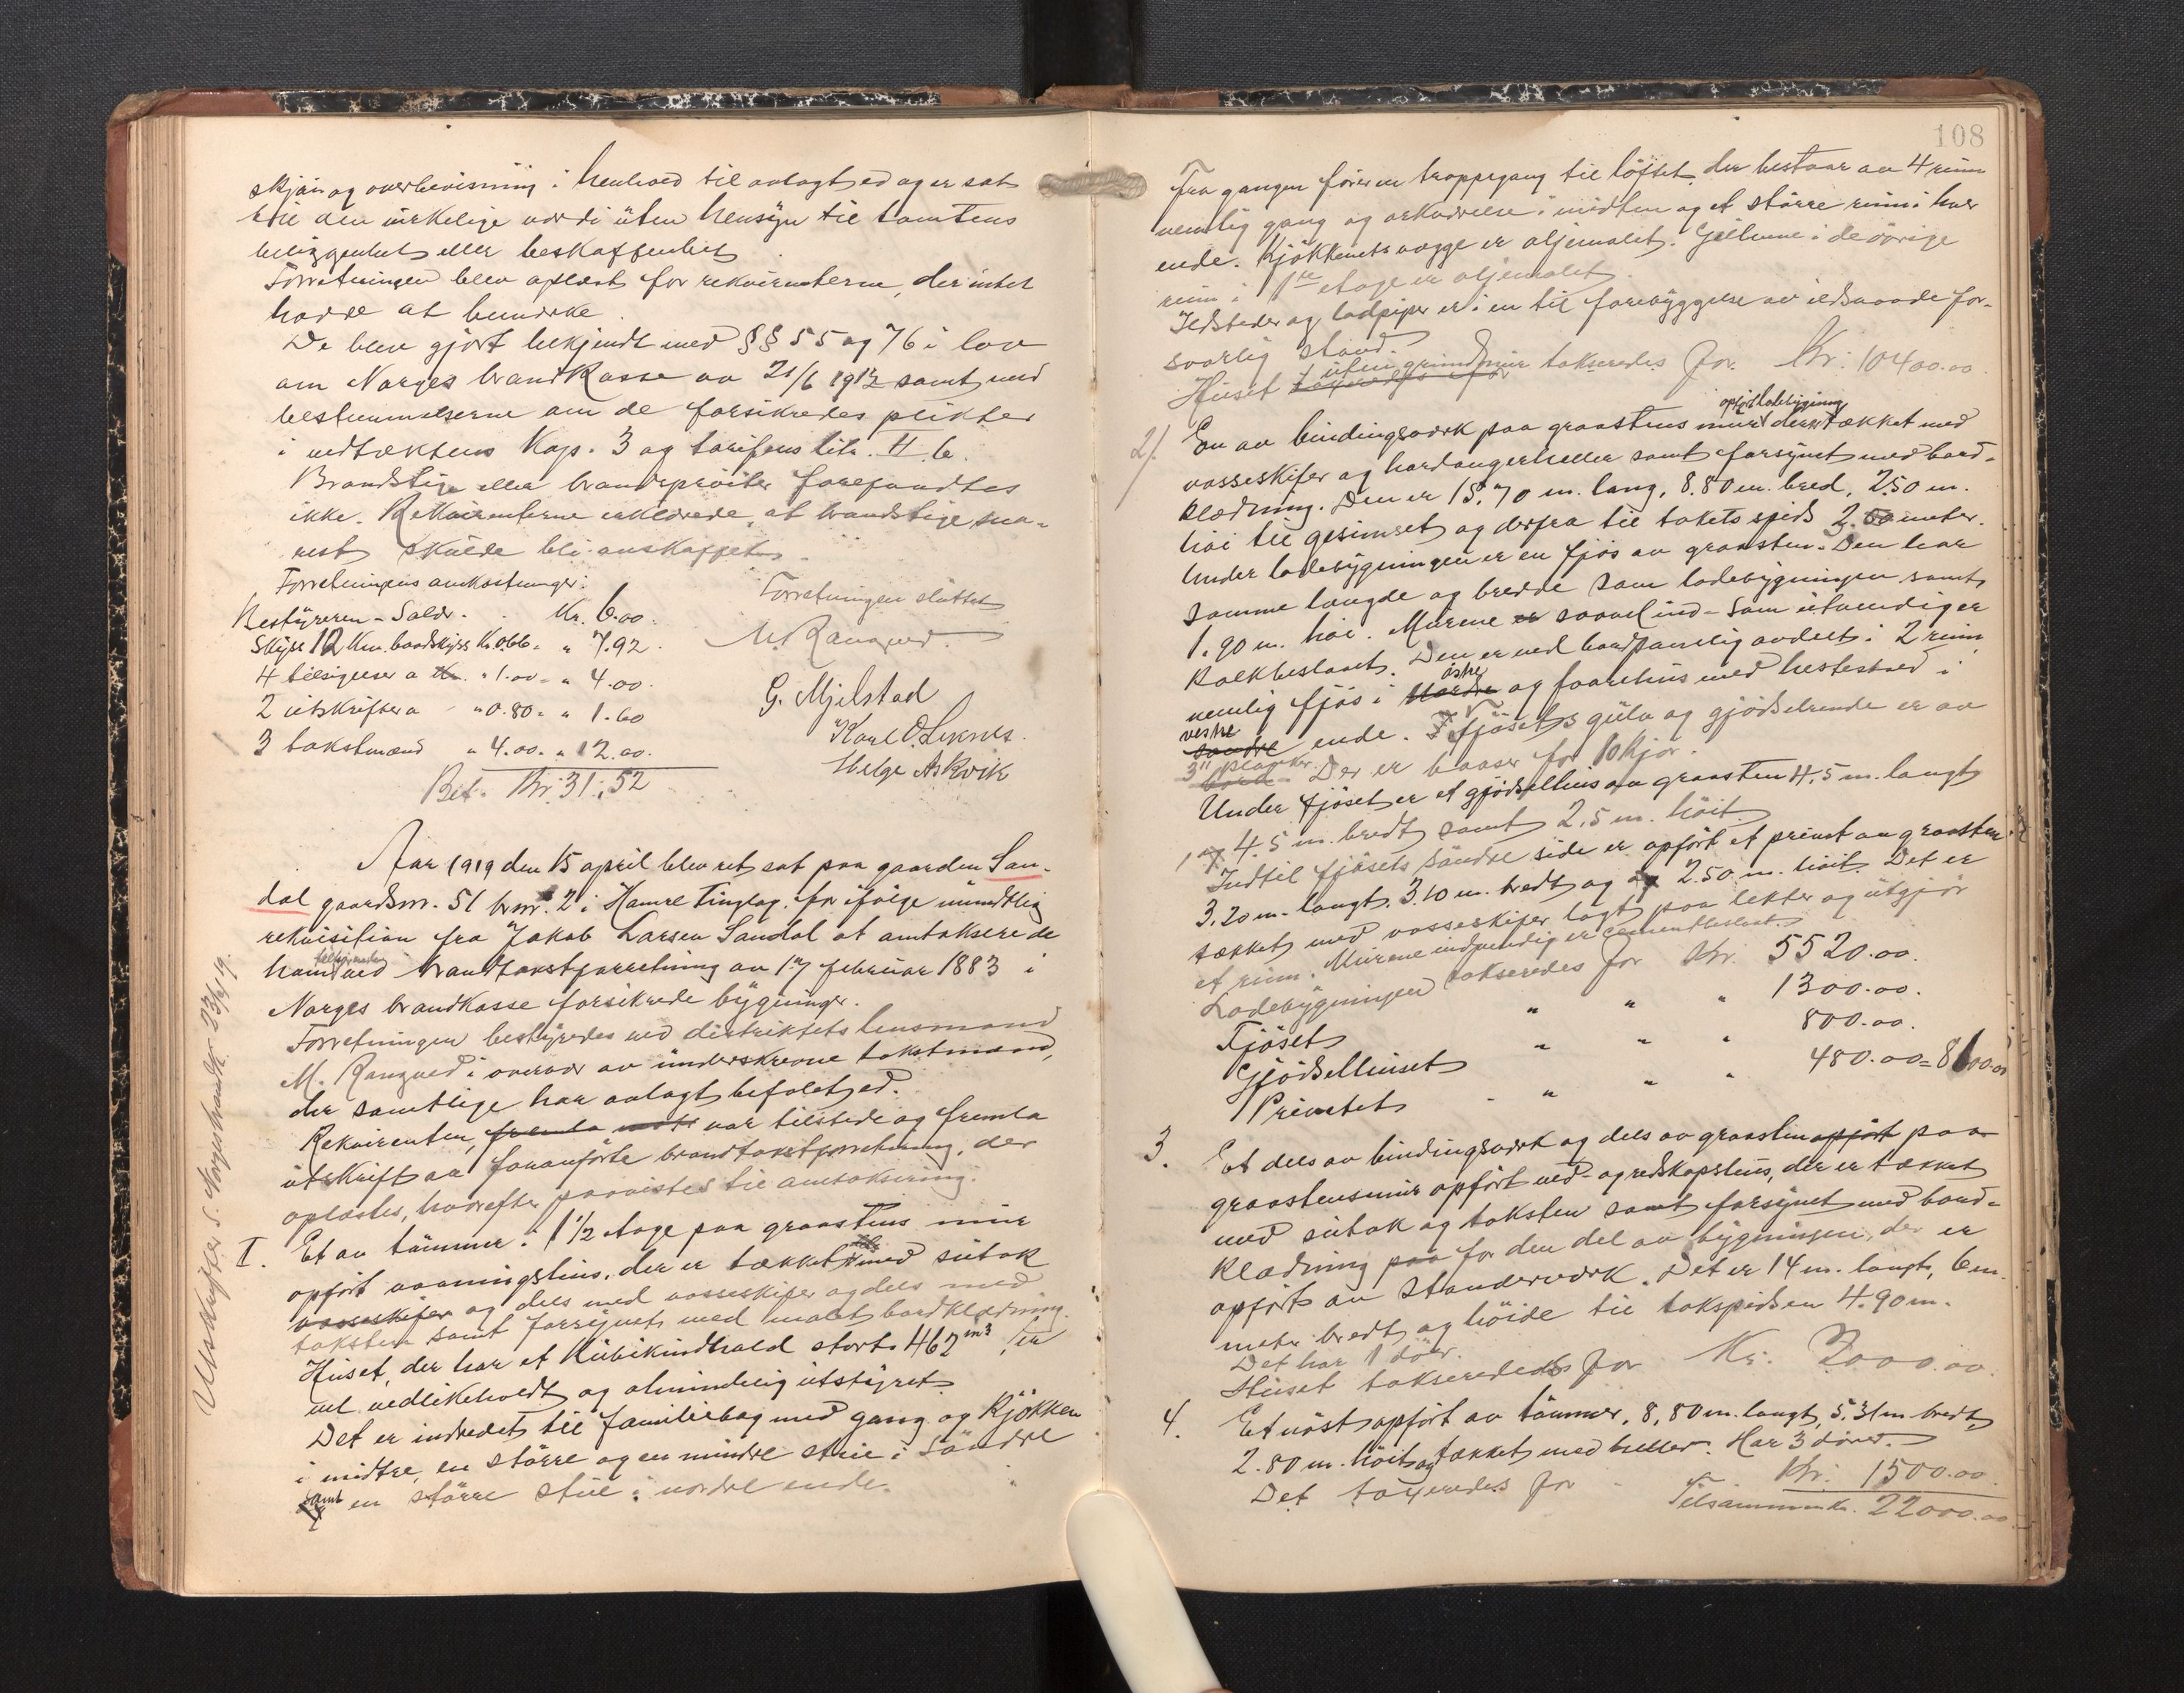 skjøn og overbevisning i henhold til avlagt ed og er sat
til den virkelige værdi uten hensyn til tomtens
beliggenhet eller beskaffenhet
Forretningen blev oplæst for rekvirenterne, der intet
hadde at bemærke.
De blev gjort bekjendt med §§ 55 og 76 i lov
om Norges brandkasse av 21/6 1912 samt med
bestemmelserne om de forsikredes plikter
i vedtæktens Kap. 3 og tarifens litr. H. 6.
Brandstige eller brandsprøiter forefandtes
ikke. Rekvirenterne erklærede, at brandstige sna-
rest skulde bli anskaffet.
Forretningens omkostninger:
Bestyreren - Salær. . Kr. 6.00.
Skyss 12 Km. baadskyss Kr. 0.66 = " 7.92.
4 tilsigelser a " 1.00 = " 4.00.
2 utskrifter a " 0.80 = " 1.60
3 takstmænd " 4.00. " 12.00.
Bet. Kr. 31,52
Forretningen sluttet
M. Rangved.
G. Mjelstad
Karl O. Leknes.
Helge Askvik
Aar 1919 den 15 april blev ret sat paa gaarden San-
dal gaardsnr. 51 brnr. 2 i Hamre Tinglag. for ifølge mundtlig
rekvisition fra Jakob Larsen Sandal at omtaksere de
ham tilhørende ved brandtakstforretning av 17 februar 1883 i
Norges brandkasse forsikrede bygninger.
Forretningen bestyredes ved distriktets lensmand
M. Rangved i overvær av underskrevne takstmænd,
der samtlige har avlagt befalet ed.
Rekvirenten, fremla var tilstede og fremla
utskrift av foranførte brandtakstforretning, der
oplæstes, hvorefter paavistes til omtaksering:
I. Et av tømmer i 1 1/2 etage paa graastens mur
opført vaaningshus, der er tækket dels med sutak
vosseskifer og dels med vosseskifer og dels med
taksten samt forsynet med malet bordklædning.
Huset, der har et Kubikindhold stort 467 m3, er
vel vedlikeholdt og almindelig utstyret
Det er indredet til familiebeg med gang og Kjøkken
i midtre, en større og en mindre stue i søndre
samt en større stue i nordre ende.
Utskrifter s. Norges brandk. 23/4 19.
108
Fra gangen fører en trappegang til loftet, der bestaar av 4 rum
nemlig gang og arkværelse i midten og et større rum i hver
ende. Kjøkkenets vægge er oljemalet. Gulvene i de øvrige
rum i 1ste etage er oljemalet.
Ildsteder og ladpiper er i en til forebyggelse av ildsvaade for-
svarlig stand
Huset uten grundmur takseredes for Kr. 10400.00.
2). En av bindingsverk paa graastens mur opført ladebygning der er tækket med
vosseskifer og hardangerheller samt forsynet med bord-
klædning. Den er 15.70 m. lang, 8.80 m. bred, 2.50 m.
høi til gesimset og derfra til takets spids 2. meter.
Under ladebygningen er en fjøs av graasten. Den har
samme længde og bredde som ladebygningen samt
1.90 m. høi. Murene er saavel ind- som utvendig er
kalkbeslaat. Den er ved bordpanelig avdelt i 2 rum
nemlig fjøs i nordre østre og faarehus med hestestald i
søndre vestre ende. Fjøsets gulv og gjødselrende er av
3" planker. Der er baaser for 10 kjør.
Under fjøset er et gjødselhus av graasten 4.5 m. langt
og 4.5 m. bredt samt 2.5 m. høit.
Indtil fjøsets søndre side er opført et privet av graasten
3.20 m. langt, 3.10 m. bredt og 2.50 m. høit. Det er
tækket med vosseskifer lagt paa lekter og utgjør
et rum. Murene indvendig er cementbeslaat.
Ladebygningen takseredes for Kr. 5520.00.
Fjøset " " " 1300.00.
Gjødselhuset " " " 800.00.
Privetet " " " 480.00 = 8100.00
3. Et dels av bindingsverk og dels av graasten opført paa
graastensmur opført ved- og redskapshus, der er tækket
med sutak og taksten samt forsynet med bord-
klædning paa for den del av bygningen, der er
opført av standerverk. Det er 14 m. langt, 6 m.
meter bredt og høide til takspidsen 4.90 m.
Det har 1 dør.
Huset takseredes for Kr. 2000.00
4. Et nøst opført av tømmer, 8,80 m. langt, 5.31 m. bredt,
2.80 m. høit og tækket med heller. Har 3 dører.
Det taxeredes for Kr. 1500.00
Tilsammen kr. 22000.00